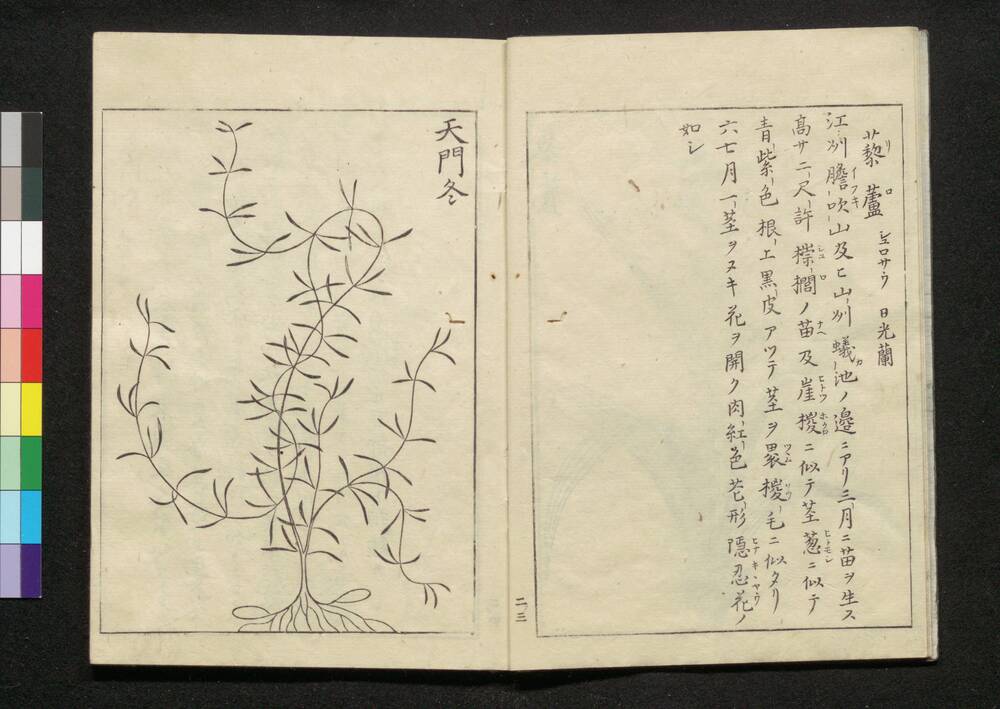 藜蘆 シュロサウ 日光蘭
江州膽吹山及ヒ山州蟻池ノ邉ニアリ三月ニ苗ヲ生ス
髙サニ尺許椶櫚ノ苗及崖椶ニ似テ茎葱ニ似テ
青紫色根上黒皮アツテ茎ヲ褁椶毛ニ似タリ
六七月一茎ヲヌキ花ヲ開ク肉紅色花形隠忍花ノ
如シ
二ノ三
天門冬